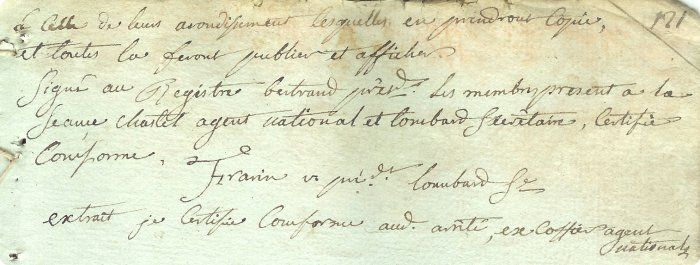 & Celle de leurs arondisement lesquelles en prendront Copie, 121
et toutes la feront publier et afficher
Signé au Registre bertrand présdt. Les membres present a la
seance, Chastel agent national et lombard Secrétaire, Certifié
Conforme, vi présdt lombard Sre
extrait je Certifie Conforme aud. arrêté, agent
national